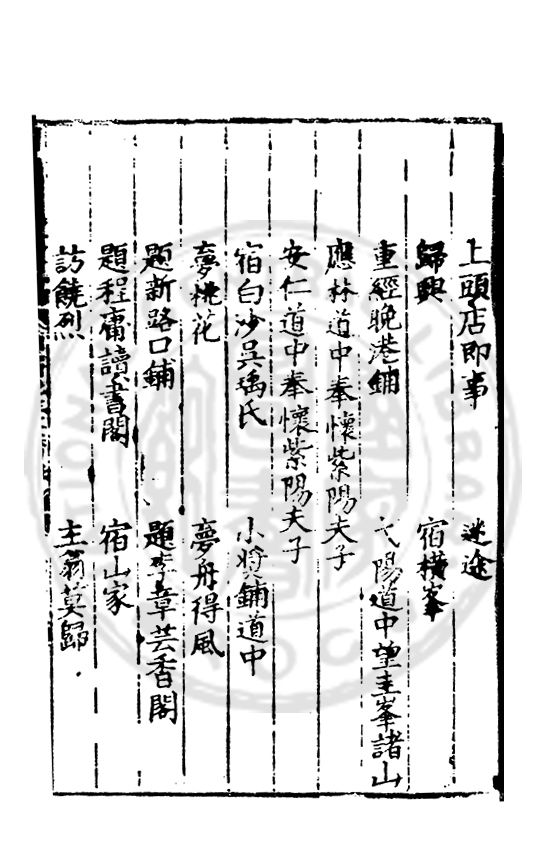 上頭店即事　迷途
歸興　宿橫峯
重經晚港鋪　弋陽道中望圭峯諸山
應林道中奉懷紫陽夫子
安仁道中奉懷紫陽夫子
宿白沙吳瑀氏　小獎鋪道中
夢桃花　夢舟得風
題新路口鋪　題李章芸香閣
題程庸讀書閣　宿山家
訪饒烈　主翁莫歸